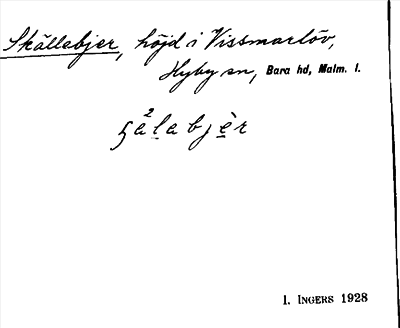 Skällebjer, höjd i Vissmarlöv,
Hyby sn, Bara hd, Malm. l.
I. INGERS 1928